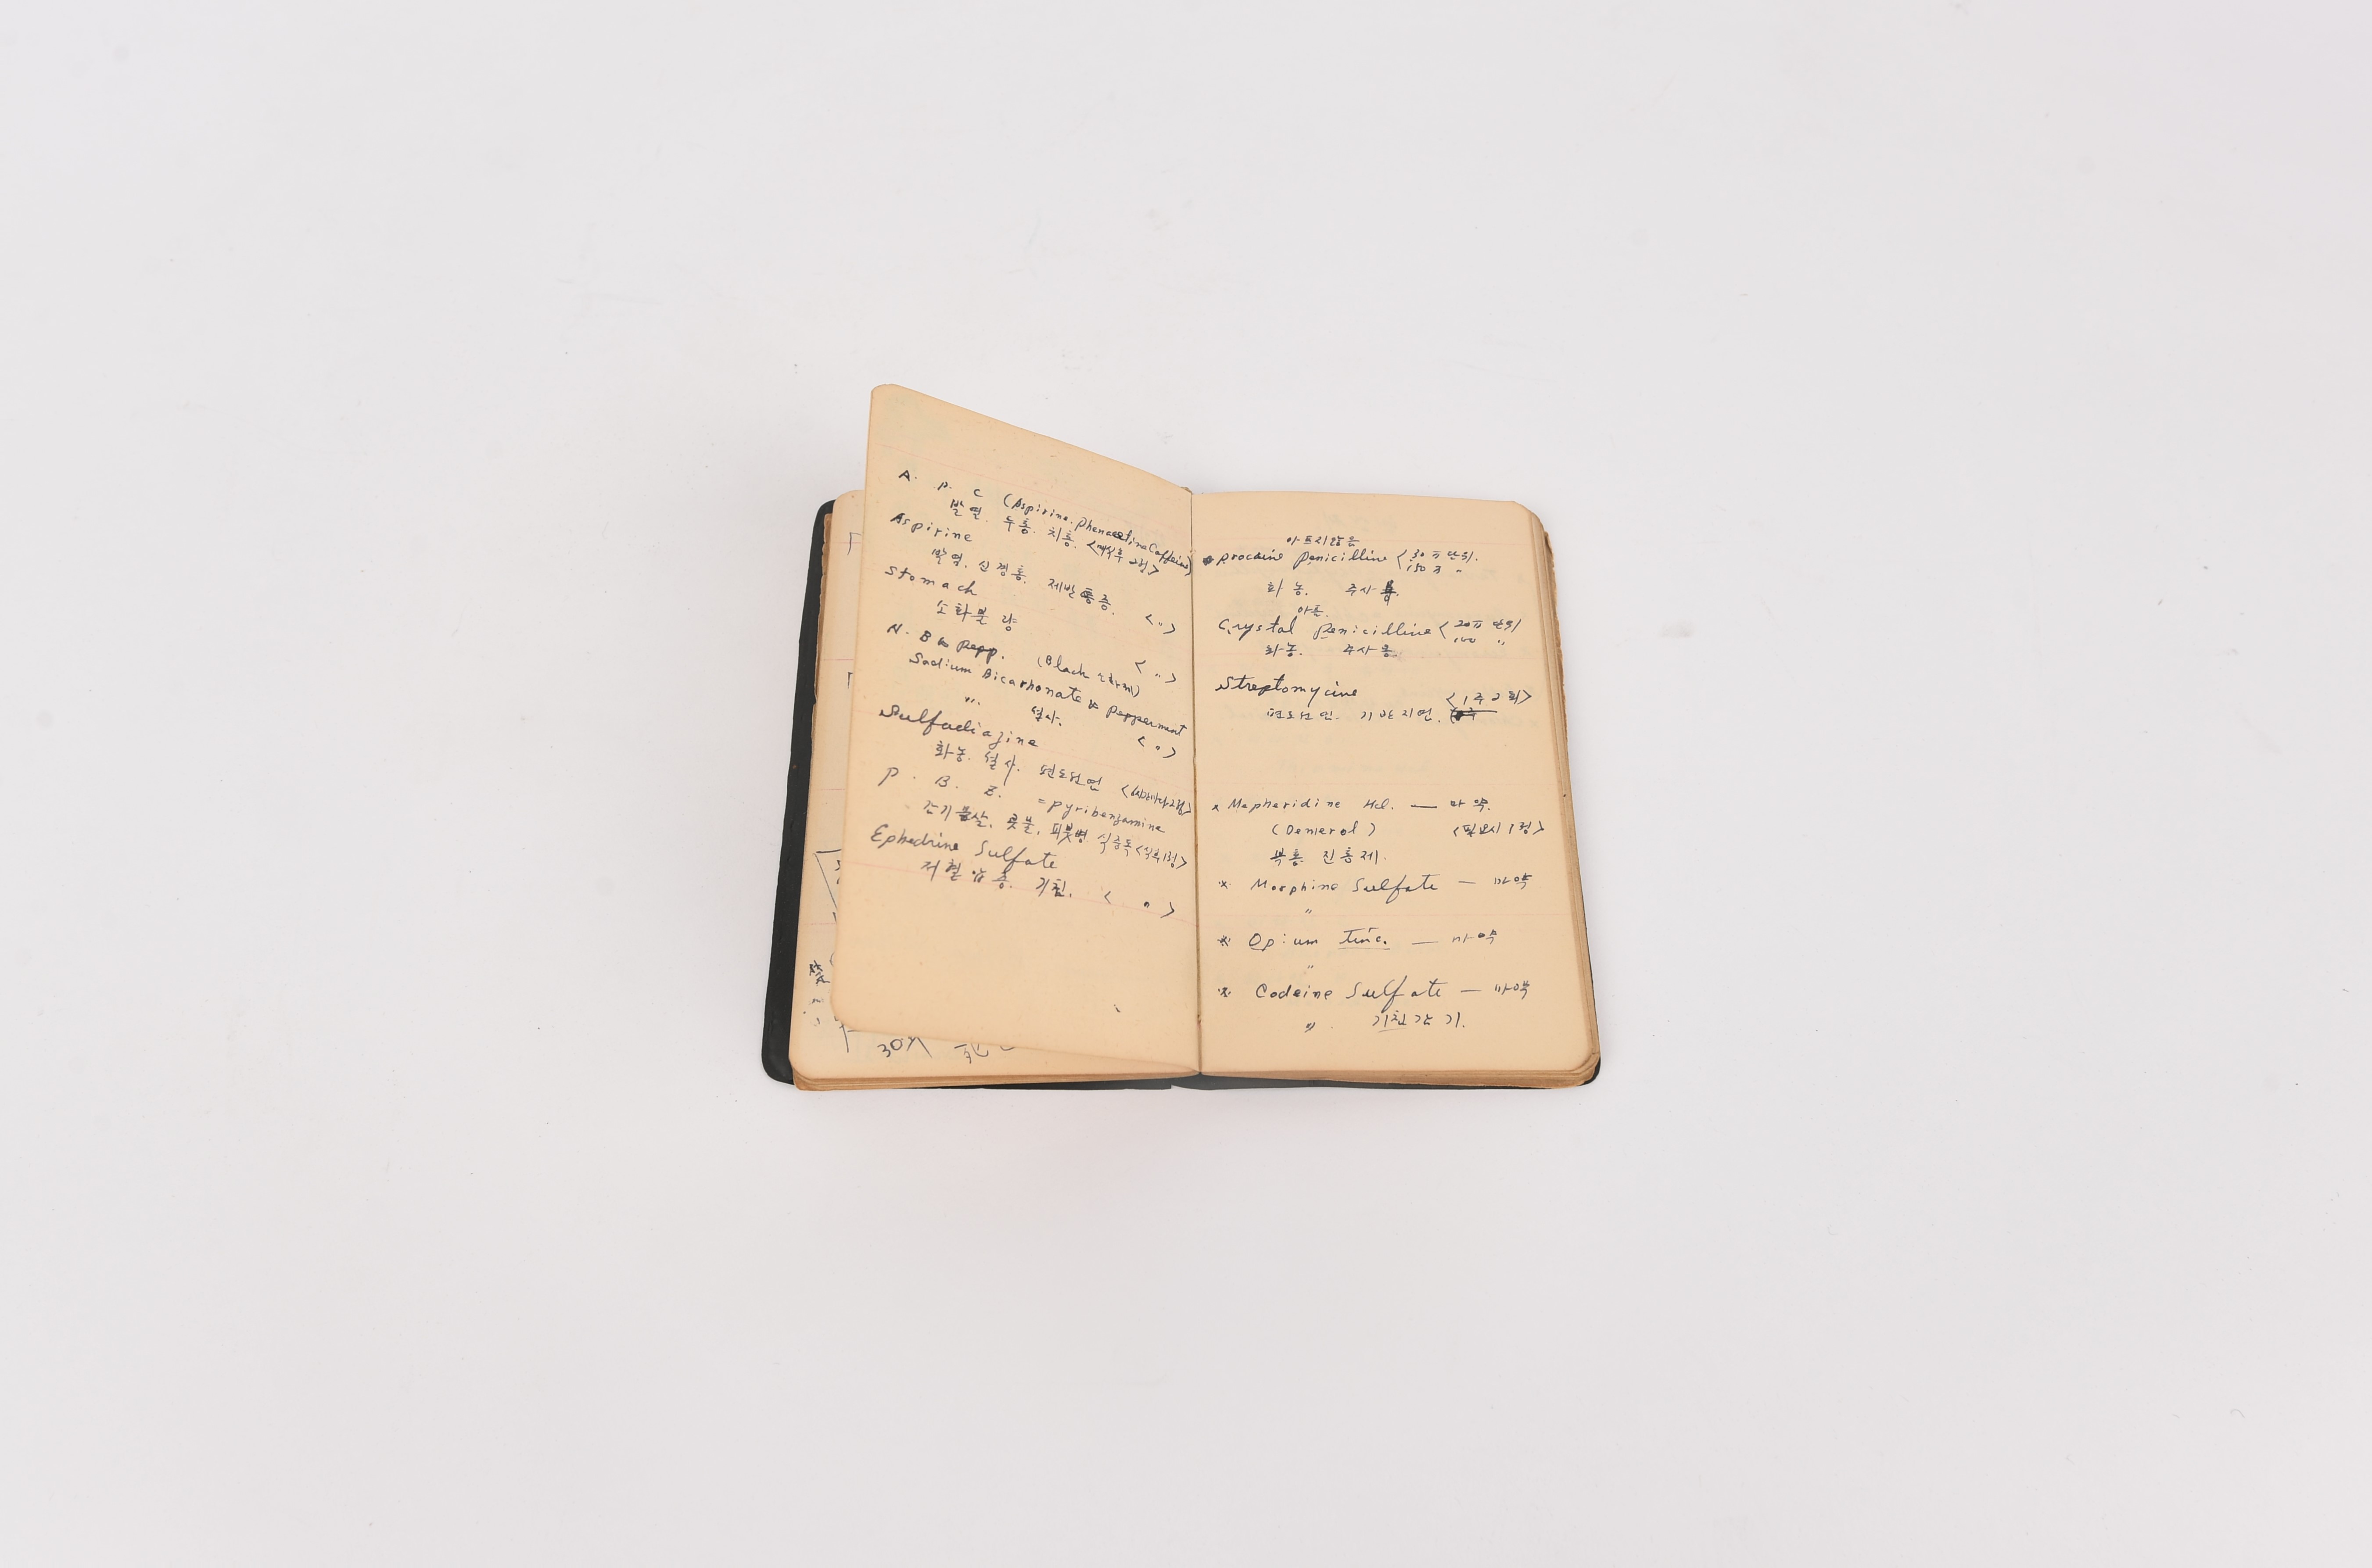 A. P. C (Aspirine. Phenacetine Caffeine)
발열. 두통. 치통. <매식후 2정>
Aspirine
발열. 신경통. 제반통증. < 〃 >
Stomach
소화불량 < 〃 >
N. B & Pepp. (Black
Sodium Bicarbonate & Peppermint
〃. 설사. < 〃 >
Sulfadiazine
화농. 설사. 편도선염
P. B. Z. = pyribenzamine
콧물. 피붓병 식중독 <식후1정>
Ephedrine Sulfate
저혈압증. 기침. < 〃 >
30
아프지않은
procaine penicilline < 30万 단위.
150万 〃
화농. 주사용.
아픈.
Crystal penicilline < 20万 단위
100 〃
화농. 주사용
Streptomycine <1주2회>
편도선염. 기관지염.
x Mepheridine Hcl. — 마약.
(Demerol) <필요시 1정>
복통 진통제.
※ Morphine Sulfate — 마약
〃
※ Opium tinc. — 마약
〃
※ Codeine Sulfate — 마약
〃. 기침감기.